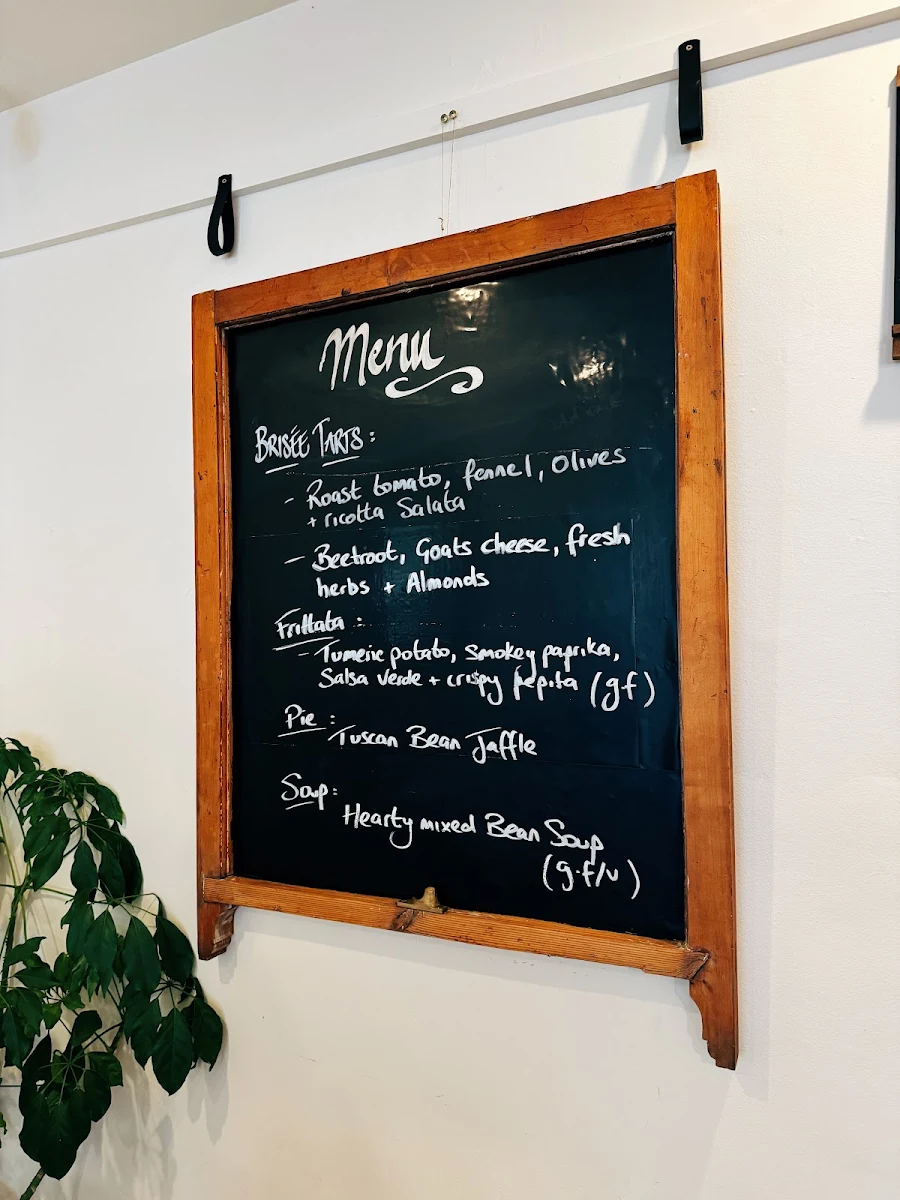 Menu
BRISÉE TARTS:
- Roast tomato, fennel, Olives
+ ricotta Salata
- Beetroot, Goats cheese, fresh
herbs + Almonds
Frittata :
- Tumeric potato, Smokey paprika,
Salsa verde + crispy pepita (gf)
Pie :
Tuscan Bean Jaffle
Soup:
Hearty mixed Bean Soup
(g.f/v)